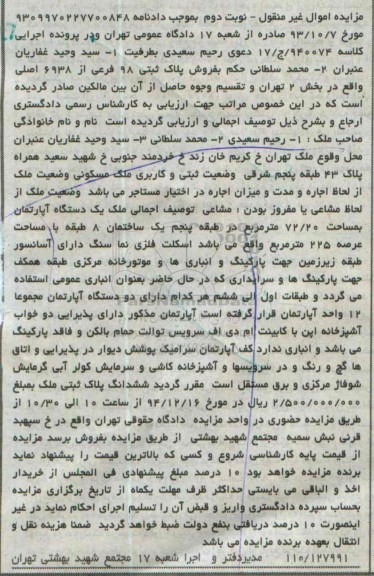 مزایده اموال غیر منقول - نوبت دوم بموجب دادنامه ۹۳۰۹۹۷۰۲۲۷۷۰۰۸۴۸
مورخ ۹۳/۱۰/۷ صادره از شعبه ۱۷ دادگاه عمومی تهران ودر پرونده اجرایی
کلاسه ۹۴۰۰۷۴/ج/۱۷ دعوی رحیم سعیدی بطرفیت ۱- سید وحید غفاریان
عنبران ۲- محمد سلطانی حکم بفروش پلاک ثبتی ۹۸ فرعی از ۶۹۳۸ اصلی
واقع در بخش ۲ تهران و تقسیم وجوه حاصل از آن بین مالکین صادر گردیده
است که در این خصوص مراتب جهت ارزیابی به کارشناس رسمی دادگستری
ارجاع و بشرح ذیل توصیف اجمالی و ارزیابی گردیده است نام و نام خانوادگی
صاحب ملک : ۱- رحیم سعیدی ۲- محمد سلطانی ۳- سید وحید غفاریان عنبران
محل وقوع ملک تهران خ کریم خان زند خ خردمند جنوبی خ شهید سعید همراه
پلاک ۴۳ طبقه پنجم شرقی وضعیت ثبتی و کاربری ملک مسکونی وضعیت ملک
از لحاظ اجاره و مدت و میزان اجاره در اختیار مستاجر می باشد وضعیت ملک از
لحاظ مشاعی یا مفروز بودن : مشاعی توصیف اجمالی ملک یک دستگاه آپارتمان
بمساحت ۷۲/۲۰ مترمربع در طبقه پنجم یک ساختمان ۸ طبقه با مساحت
عرصه ۲۲۵ مترمربع واقع می باشد اسکلت فلزی نما سنگ دارای آسانسور
طبقه زیرزمین جهت پارکینگ و انباری ها و موتورخانه مرکزی طبقه همکف
جهت پارکینگ ها و سرایداری که در حال حاضر بعنوان انباری عمومی استفاده
می گردد و طبقات اول الی ششم هر کدام دارای دو دستگاه آپارتمان مجموعا
۱۲ واحد آپارتمان قرار گرفته است آپارتمان مذکور دارای پذیرایی دو خواب
آشپزخانه اپن با کابینت ام دی اف سرویس توالت حمام بالکن و فاقد پارکینگ
می باشد و انباری ندارد کف آپارتمان سرامیک پوشش دیوار در پذیرایی و اتاق
ها گچ و رنگ و در سرویسها و آشپزخانه کاشی و سرمایش کولر آبی گرمایش
شوفاژ مرکزی و برق مستقل است مقرر گردید ششدانگ پلاک ثبتی ملک بمبلغ
۲/۵۰۰/۰۰۰/۰۰۰ ریال در مورخ ۹۴/۱۲/۱۶ از ساعت ۱۰ الی ۱۰/۳۰ از
طریق مزایده حضوری در واحد مزایده دادگاه حقوقی تهران واقع در خ سپهبد
قرنی نبش سمیه مجتمع شهید بهشتی از طریق مزایده بفروش برسد مزایده
از قیمت پایه کارشناسی شروع و کسی که بالاترین قیمت را پیشنهاد نماید
برنده مزایده خواهد بود ۱۰ درصد مبلغ پیشنهادی فی المجلس از خریدار
اخذ و الباقی می بایستی حداکثر ظرف مهلت یکماه از تاریخ برگزاری مزایده
بحساب سپرده دادگستری واریز و قبض آن را تسلیم اجرای احکام نماید در غیر
اینصورت ۱۰ درصد دریافتی بنفع دولت ضبط خواهد گردید ضمنا هزینه نقل و
انتقال بعهده برنده مزایده می باشد
۱۱۰/۱۲۷۹۹۱ مدیردفتر و اجرا شعبه ۱۷ مجتمع شهید بهشتی تهران